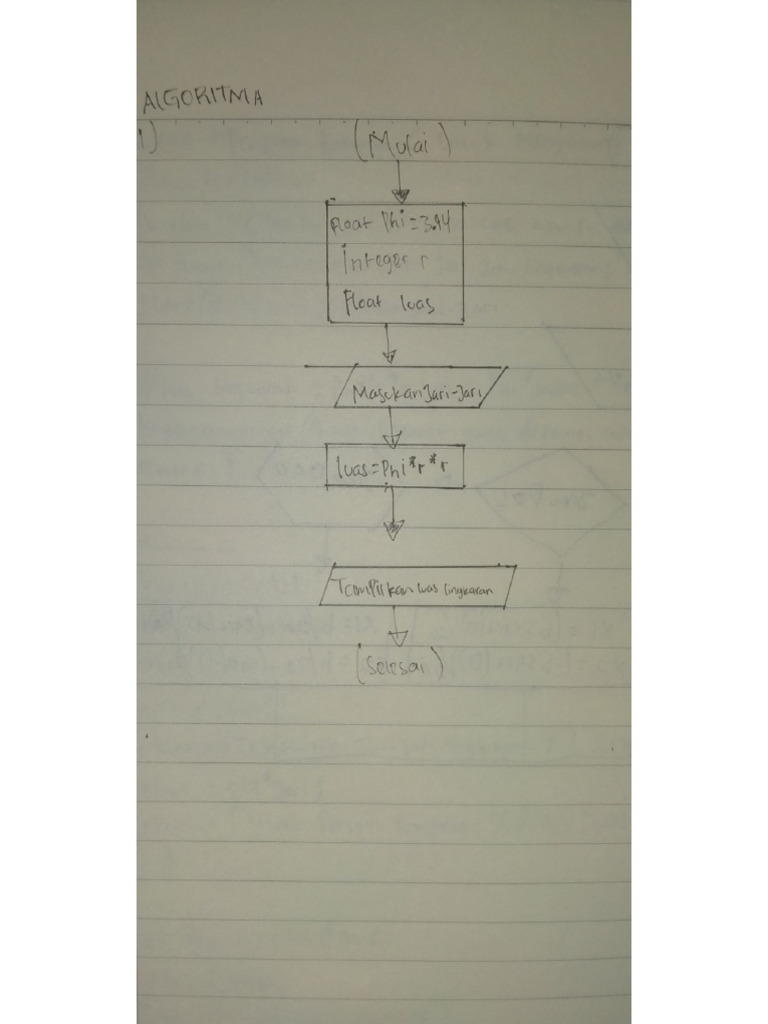 ALGORITMA
1)
(Mulai)
Float Phi=3.14
Integer r
Float luas
Masukan Jari-Jari
luas=Phi*r*r
Tampilkan luas lingkaran
(Selesai)